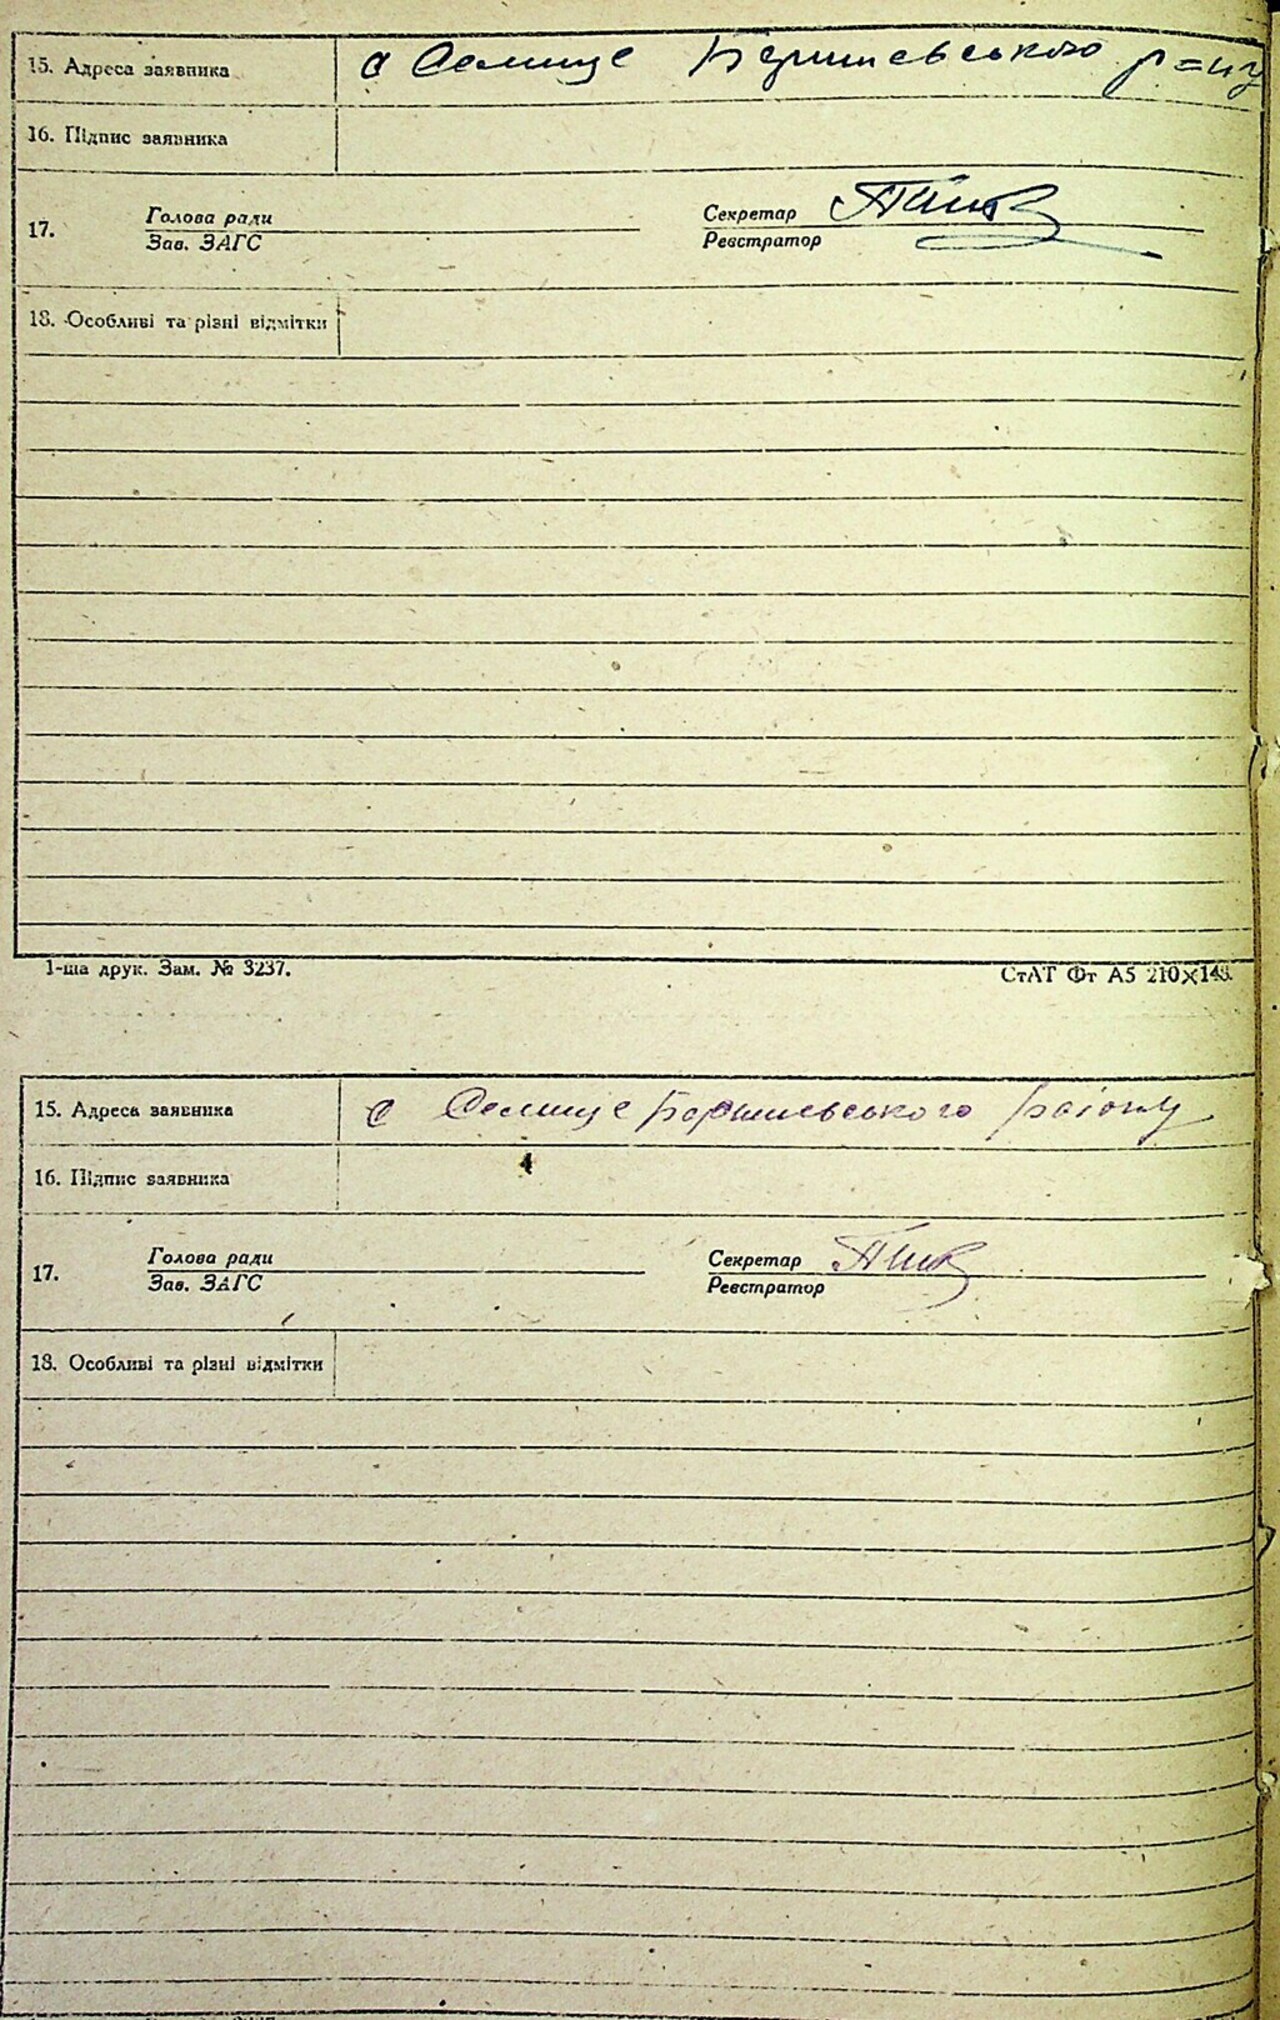 15. Адреса заявника с Селище Баришевського р=ну
16. Підпис заявника
17. Голова ради Секретар
Зав. ЗАГС Реєстратор
18. Особливі та різні відмітки
1-ша друк. Зам. № 3237. СтАТ Фт А5 210×148.
15. Адреса заявника с Селище Баришевського району
16. Підпис заявника
17. Голова ради Секретар
Зав. ЗАГС Реєстратор
18. Особливі та різні відмітки